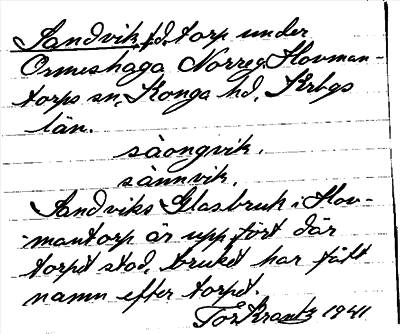 Sandvik, f.d. torp under
Ormeshaga Norreg. Hovman-
torps sn, Konga hd, Krbgs
län.
såongvik.
sånnvik.
Sandviks Glasbruk i Hov-
mantorp är uppfört där
torpet stod, bruket har fått
namn efter torpet.
Tor Krantz 1941